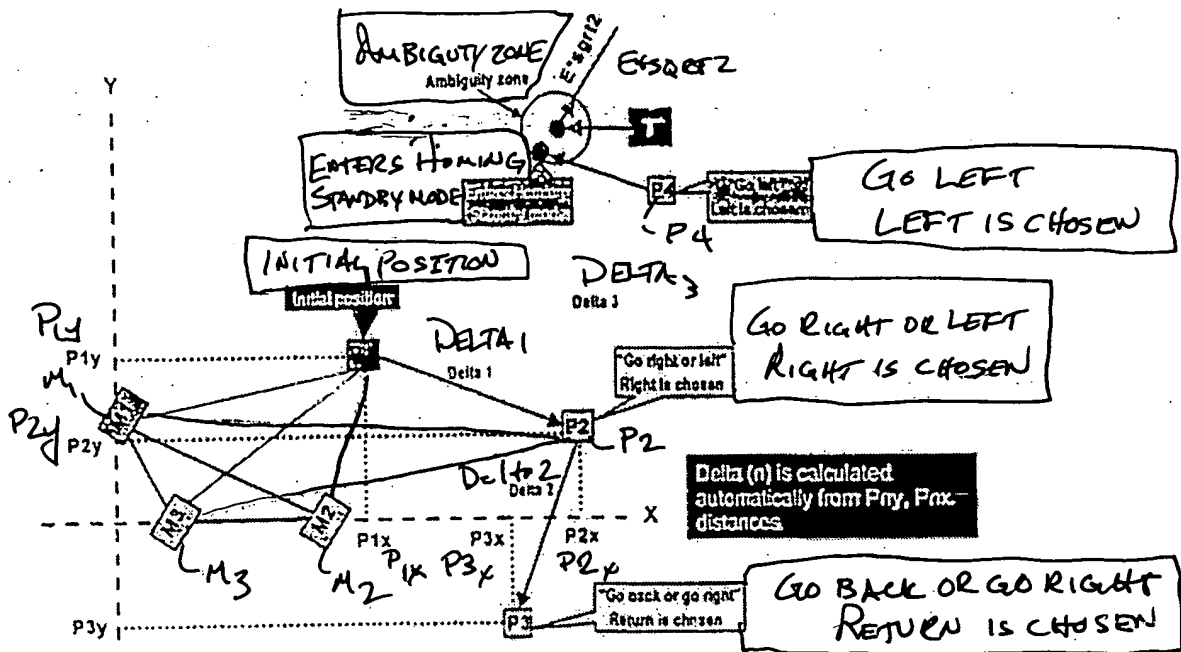 AMBIGUITY ZONE
Ambiguity zone
E*sqrt2
E*SQRT2
Y
T
ENTERS HOMING
STANDBY MODE
Standby mode
P4
P4
"Go left"
Left is chosen
GO LEFT
LEFT IS CHOSEN
INITIAL POSITION
Initial position
DELTA 3
Delta 3
P1y
P1y
DELTA 1
Delta 1
"Go right or left"
Right is chosen
GO RIGHT OR LEFT
RIGHT IS CHOSEN
M1
M1
P2y
P2y
P2
P2
Delta 2
Delta 2
Delta (n) is calculated
automatically from Pny, Pnx
distances
M3
M2
X
M3
M2
P1x
P1x
P3x
P3x
P2x
P2x
P3y
P3
"Go back or go right"
Return is chosen
GO BACK OR GO RIGHT
RETURN IS CHOSEN